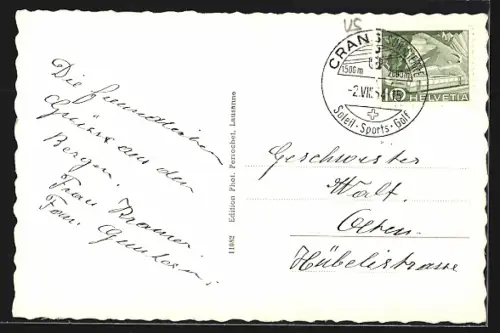 US
CRANS
1500 m
-2.VII.54
Soleil-Sports-Golf
10
HELVETIA
Die freundlichen
Grüsse aus den
Bergen.
Frau Kramer
Fam.
11682 Edition Phot. Perrochet, Lausanne
Geschwister
Wolf.
Olten.
Hübelistrasse